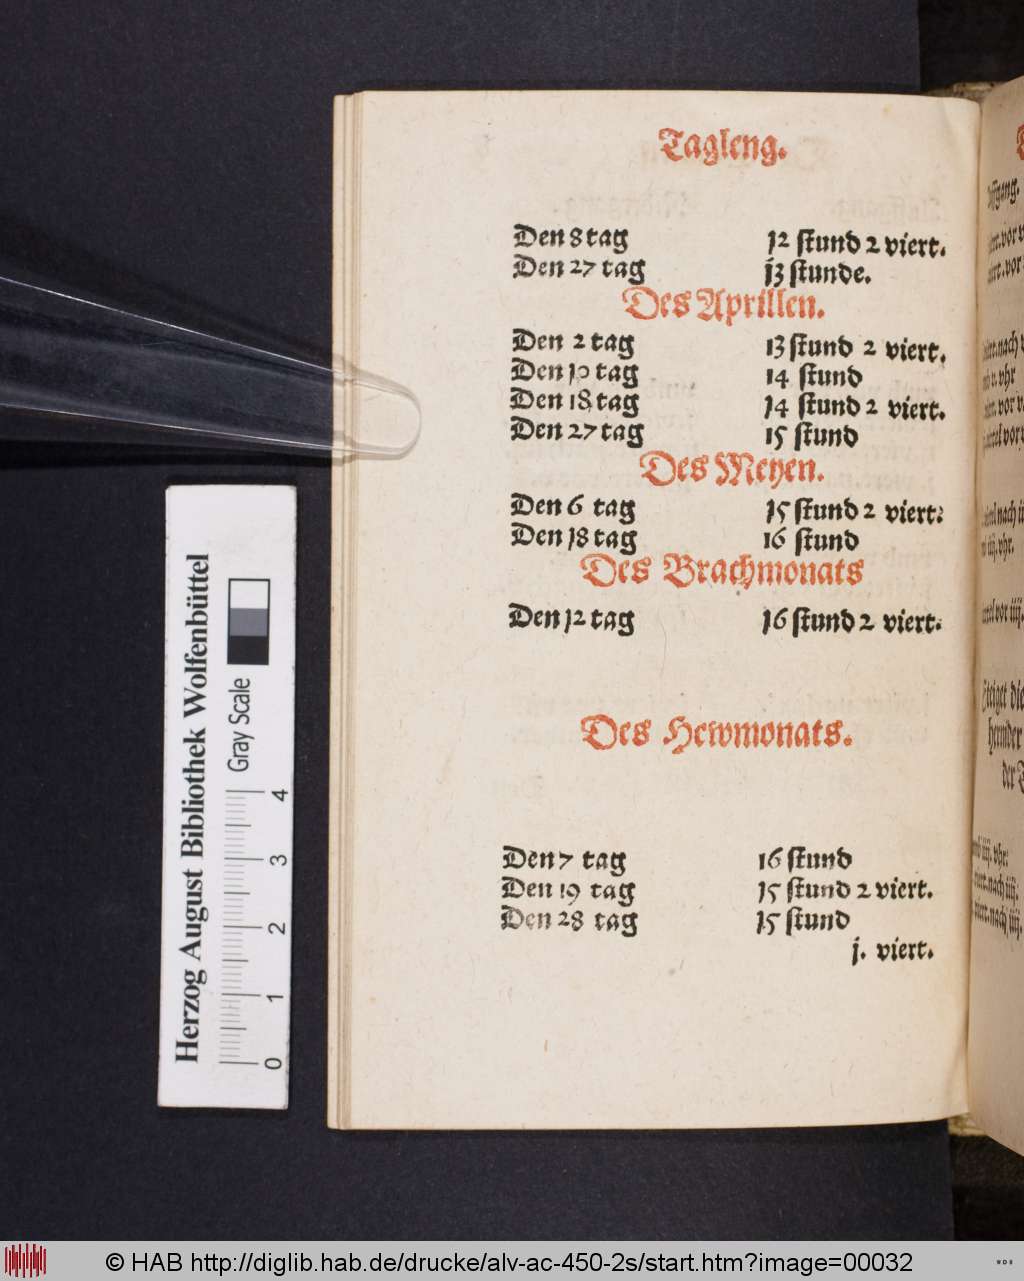 Tagleng.
Den 8 tag 12 stund 2 viert.
Den 27 tag 13 stunde.
Des Aprillen.
Den 2 tag 13 stund 2 viert.
Den 10 tag 14 stund
Den 18 tag 14 stund 2 viert.
Den 27 tag 15 stund
Des Meyen.
Den 6 tag 15 stund 2 viert.
Den 18 tag 16 stund
Des Brachmonats
Den 12 tag 16 stund 2 viert.
Des Hewmonats.
Den 7 tag 16 stund
Den 19 tag 15 stund 2 viert.
Den 28 tag 15 stund
j. viert.
Herzog August Bibliothek Wolfenbüttel
Gray Scale
0 1 2 3 4
© HAB http://diglib.hab.de/drucke/alv-ac-450-2s/start.htm?image=00032